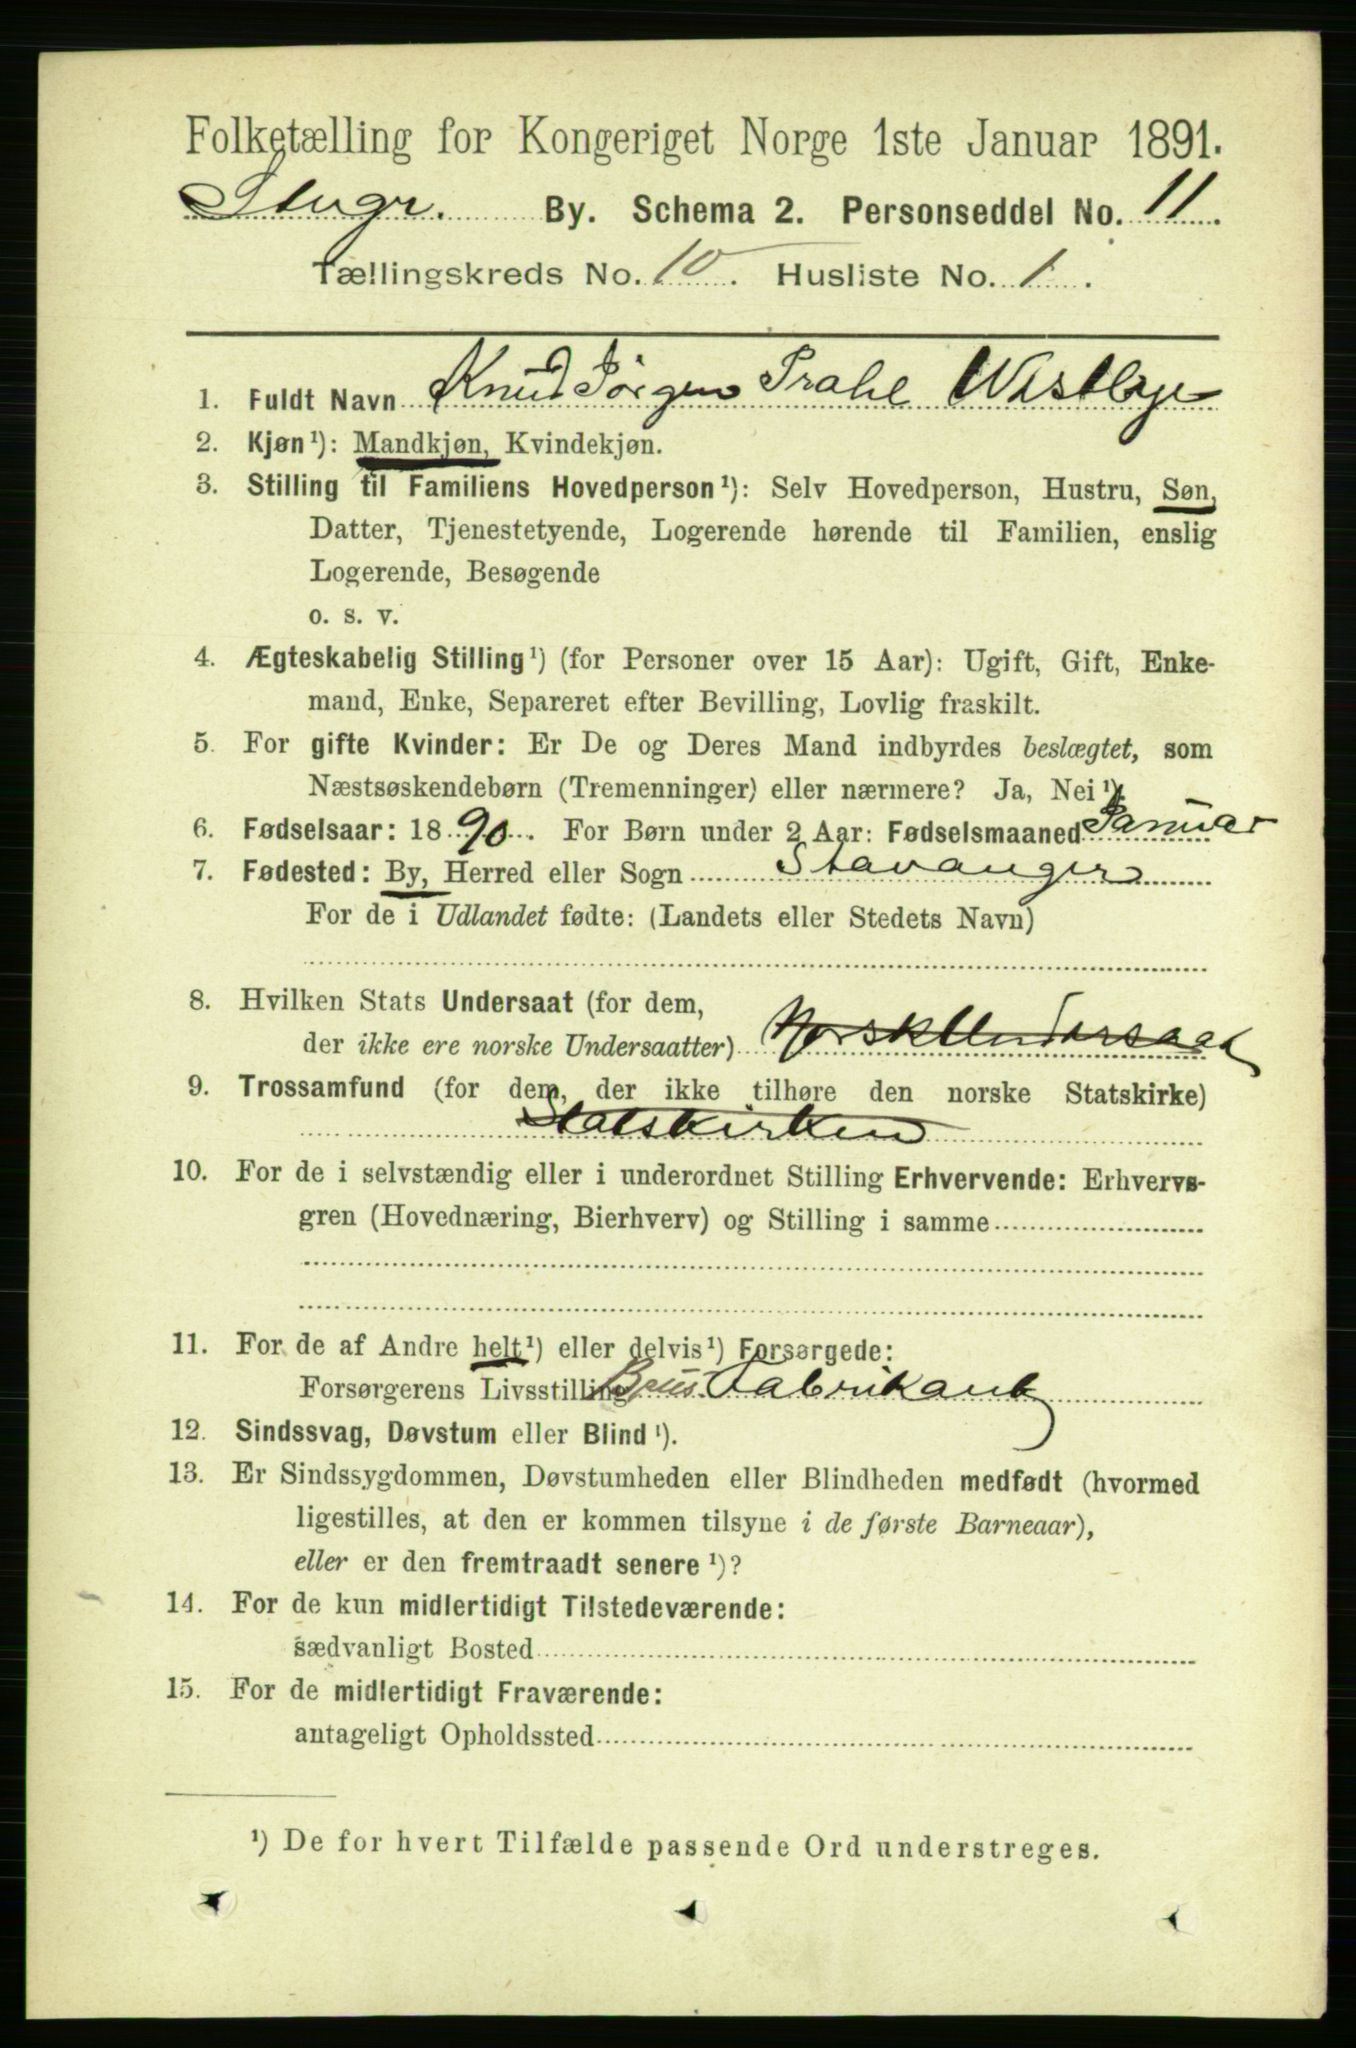 Folketælling for Kongeriget Norge 1ste Januar 1891.
Stvgr. By. Schema 2. Personseddel No. 11.
Tællingskreds No. 10. Husliste No. 1.
1. Fuldt Navn Knud Jørgen Prahl Westbye
2. Kjøn¹): Mandkjøn, Kvindekjøn.
3. Stilling til Familiens Hovedperson¹): Selv Hovedperson, Hustru, Søn,
Datter, Tjenestetyende, Logerende hørende til Familien, enslig
Logerende, Besøgende
o. s. v.
4. Ægteskabelig Stilling¹) (for Personer over 15 Aar): Ugift, Gift, Enke-
mand, Enke, Separeret efter Bevilling, Lovlig fraskilt.
5. For gifte Kvinder: Er De og Deres Mand indbyrdes beslægtet, som
Næstsøskendebørn (Tremenninger) eller nærmere? Ja, Nei¹)
6. Fødselsaar: 1890. For Børn under 2 Aar: Fødselsmaaned Januar
7. Fødested: By, Herred eller Sogn Stavanger
For de i Udlandet fødte: (Landets eller Stedets Navn)
8. Hvilken Stats Undersaat (for dem,
der ikke ere norske Undersaatter) Norsk Undersaat
9. Trossamfund (for dem, der ikke tilhøre den norske Statskirke)
Statskirken
10. For de i selvstændig eller i underordnet Stilling Erhvervende: Erhvervs-
gren (Hovednæring, Bierhverv) og Stilling i samme
11. For de af Andre helt¹) eller delvis¹) Forsørgede:
Forsørgerens Livsstilling Brus. Fabrikant
12. Sindssvag, Døvstum eller Blind¹).
13. Er Sindssygdommen, Døvstumheden eller Blindheden medfødt (hvormed
ligestilles, at den er kommen tilsyne i de første Barneaar),
eller er den fremtraadt senere¹)?
14. For de kun midlertidigt Tilstedeværende:
sædvanligt Bosted
15. For de midlertidigt Fraværende:
antageligt Opholdssted
¹) De for hvert Tilfælde passende Ord understreges.